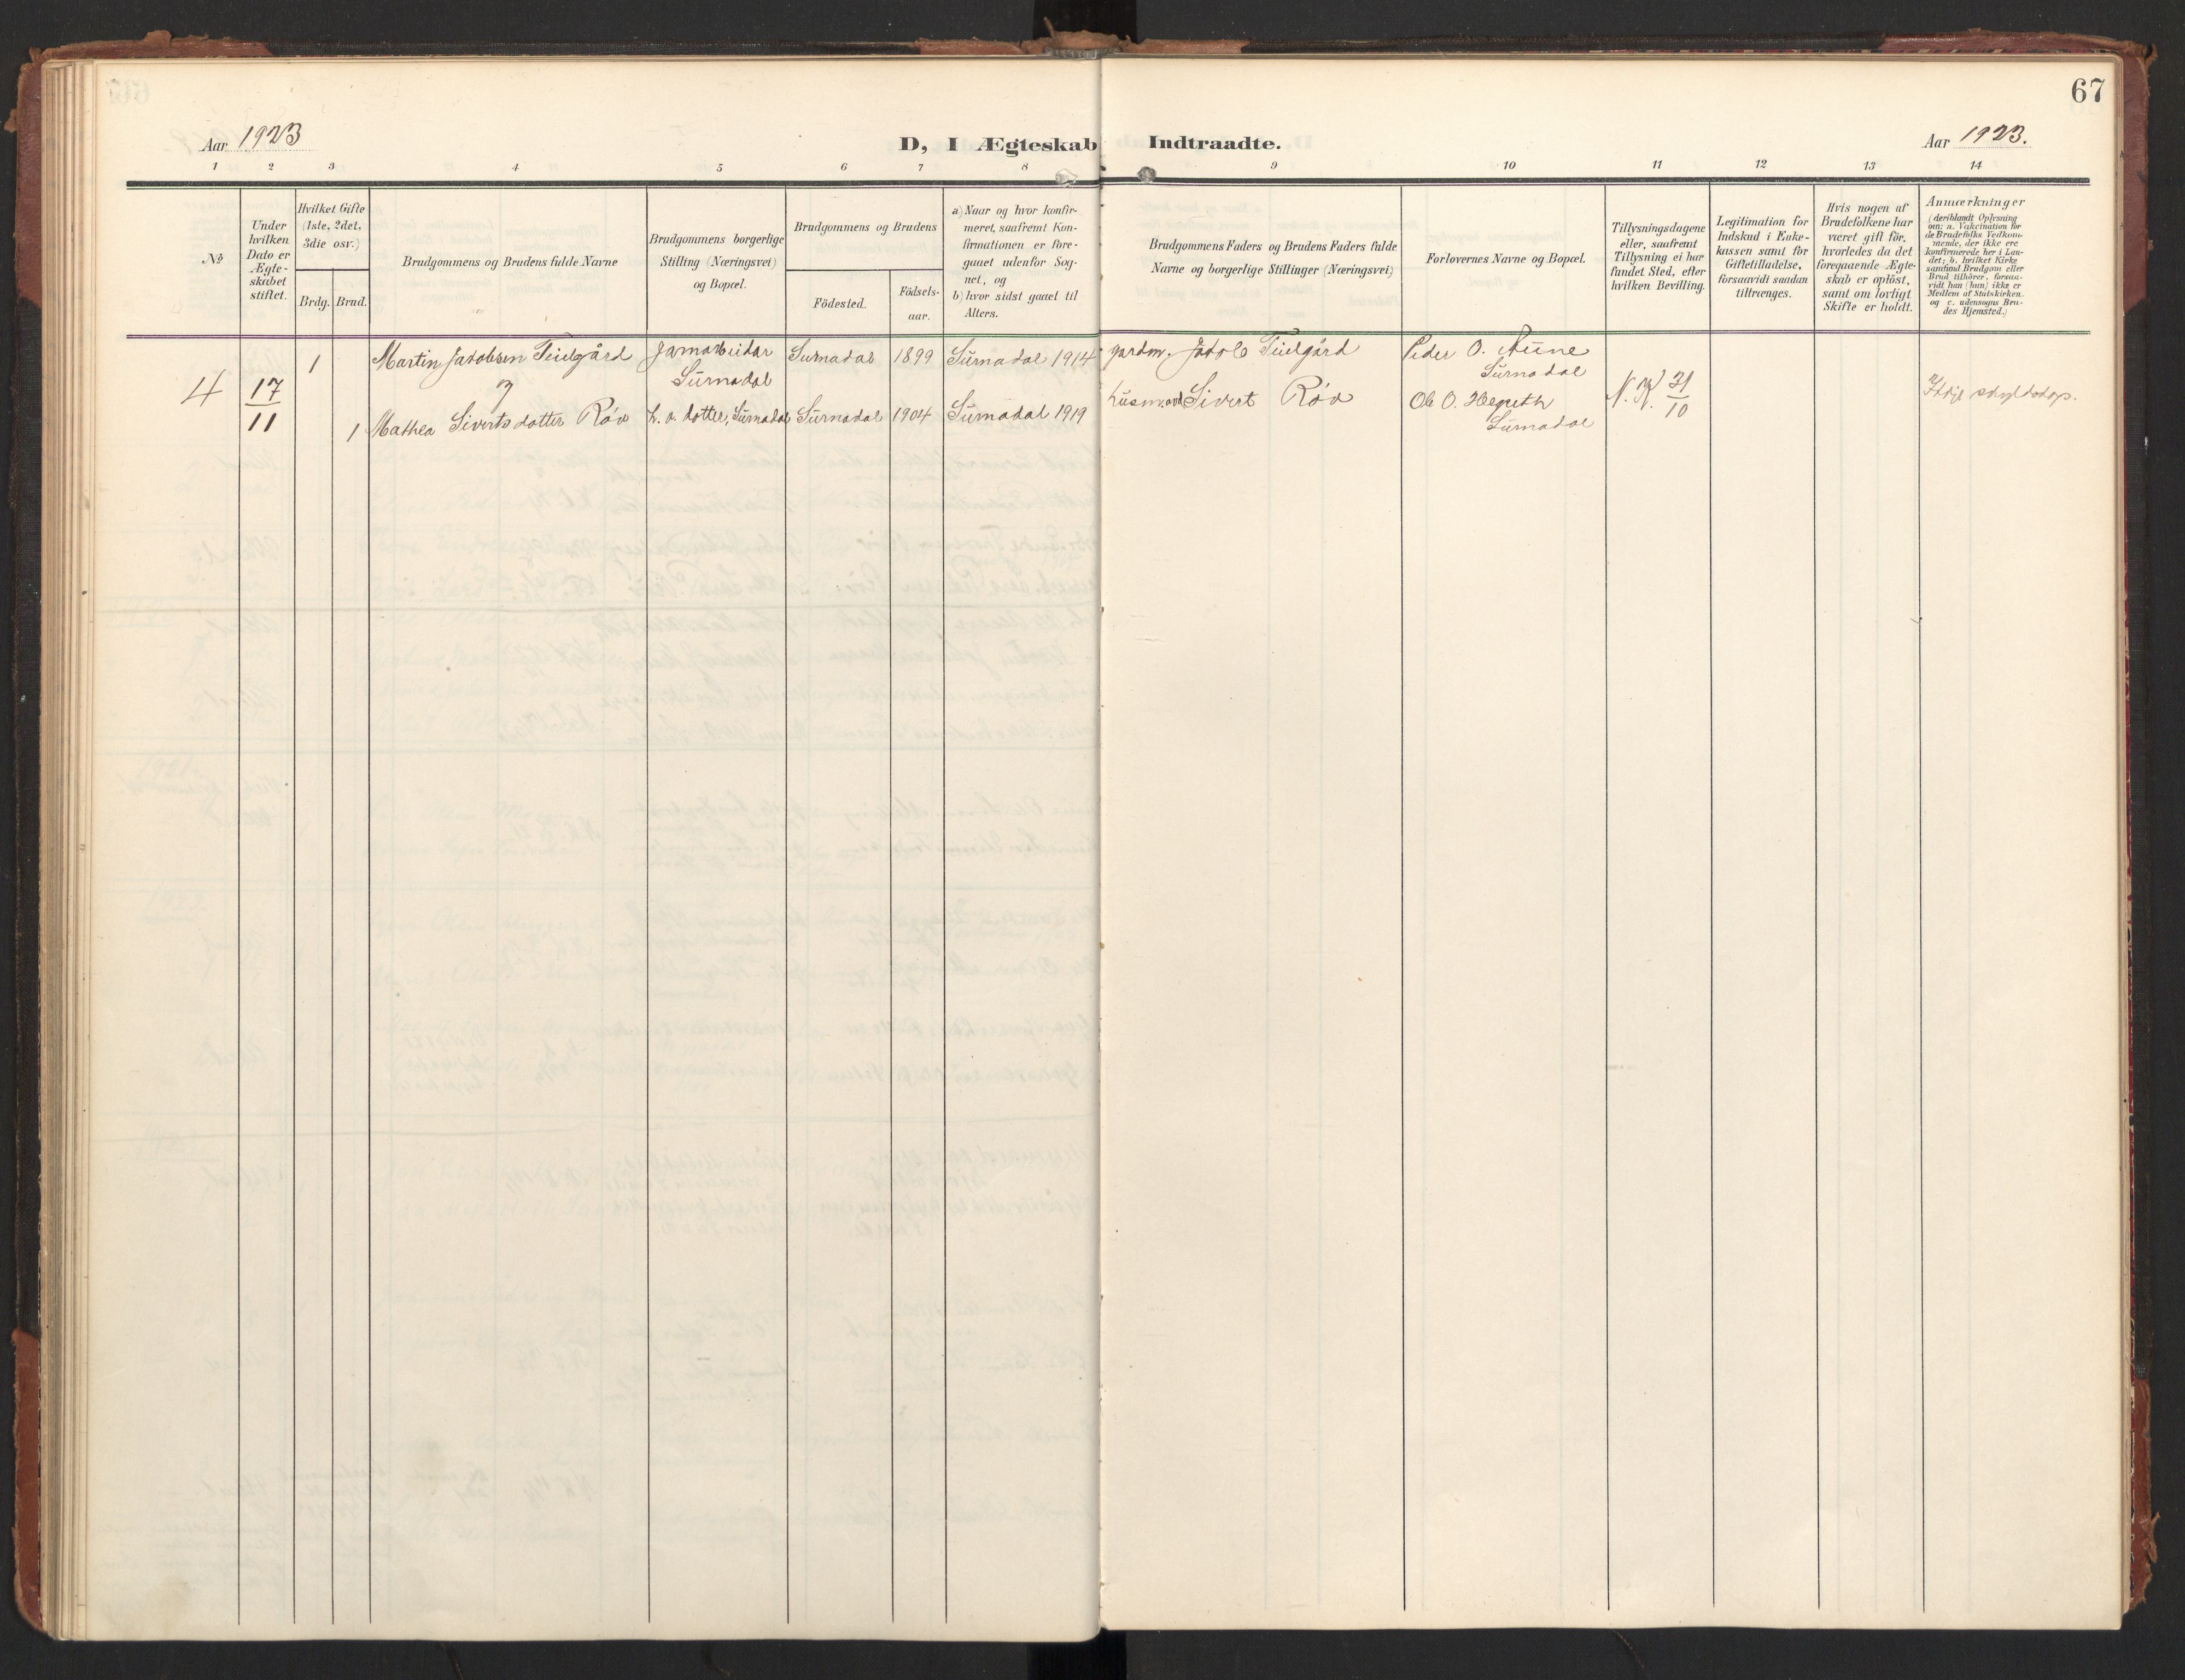 67
Aar 1923
D, I Ægteskab Indtraadte.
Aar 1923.
1 2 3 4 5 6 7 8 9 10 11 12 13 14
№
Under
hvilken
Dato er
Ægte-
skabet
stiftet.
Hvilket Gifte
(1ste, 2det,
3die osv.)
Brdg. Brud.
Brudgommens og Brudens fulde Navne
Brudgommens borgerlige
Stilling (Næringsvei)
og Bopæl.
Brudgommens og Brudens
Födested.
Födsels-
aar.
a) Naar og hvor konfir-
meret, saafremt Kon-
firmationen er fore-
gaaet udenfor Sog-
net, og
b) hvor sidst gaaet til
Alters.
Brudgommens Faders og Brudens Faders fulde
Navne og borgerlige Stillinger (Næringsvei)
Forlovernes Navne og Bopæl.
Tillysningsdagene
eller, saafremt
Tillysning ei har
fundet Sted, efter
hvilken Bevilling.
Legitimation for
Indskud i Enke-
kassen samt for
Giftetilladelse,
forsaavidt saadan
tiltrænges.
Hvis nogen af
Brudefolkene har
været gift för,
hvorledes da det
foregaaende Ægte-
skab er oplöst,
samt om lovligt
Skifte er holdt.
Anmærkninger
(deriblandt Oplysning
om: a. Vakcination for
de Brudefolks Vedkom-
mende, der ikke ere
konfirmerede her i Lan-
det; b. hvilket Kirke-
samfund Brudgom eller
Brud tilhörer, forsaa-
vidt han (hun) ikke er
Medlem af Statskirken
og c. udensogns Bru-
des Hjemsted.)
4
17
11
1 Martin Jakobsen Teielgård Jarnarbeidar Surnadal 1899 Surnadal 1914 gardm. Jakob Teielgård Peder O. Aune
Surnadal Surnadal
og
1 Mathea Sivertsdotter Röv h. v. dotter, Surnadal Surnadal 1904 Surnadal 1919 husm. Sivert Röv Ole O.
Surnadal
N. K. 31
10
Ikkje skyldskap.